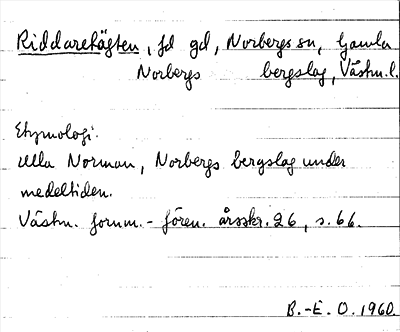 Riddarehägten, fd gd, Norbergs sn, Gamla
Norbergs bergslag, Västm. l.
Etymologi.
Ulla Norman, Norbergs bergslag under
medeltiden.
Västm. fornm.-fören. årsskr. 26, s. 66.
B.-E. O. 1960.